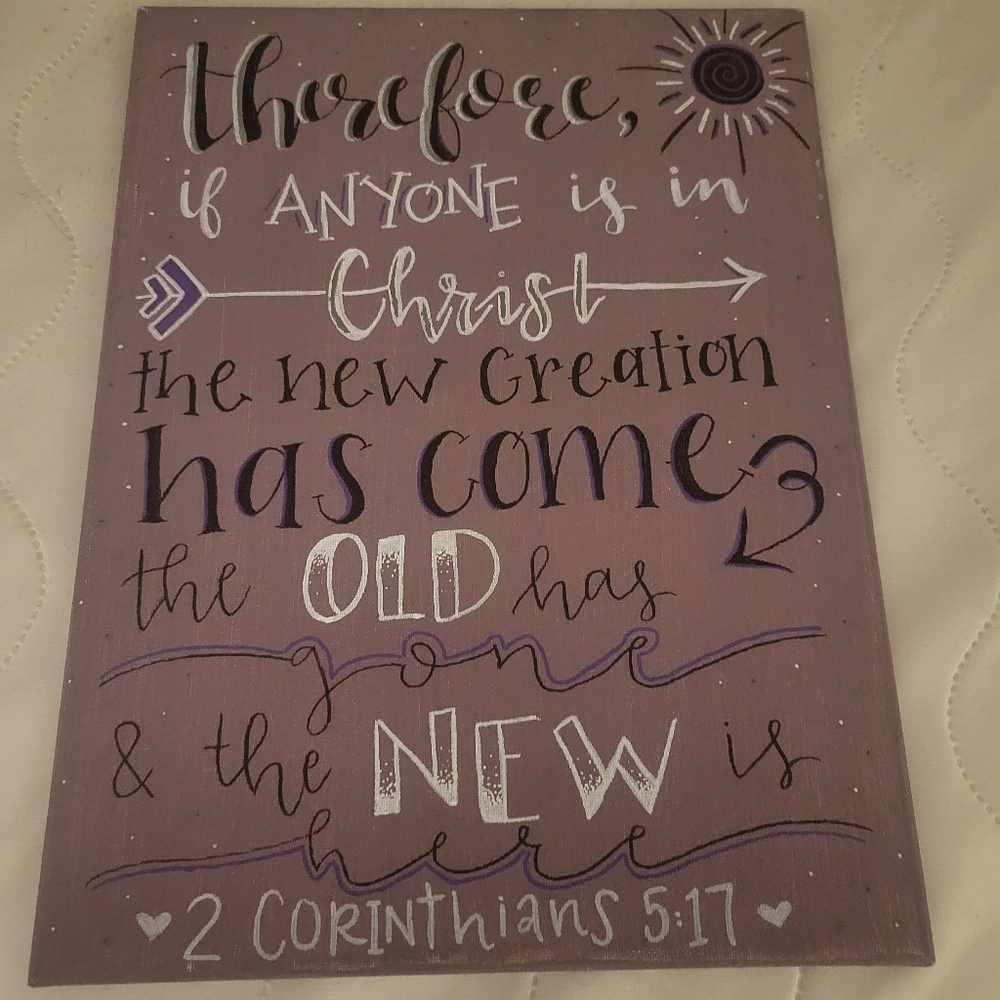 therefore,
if ANYONE is in
Christ
the new Creation
has come
the OLD has
gone
& the NEW is
here
2 CORINThianS 5:17